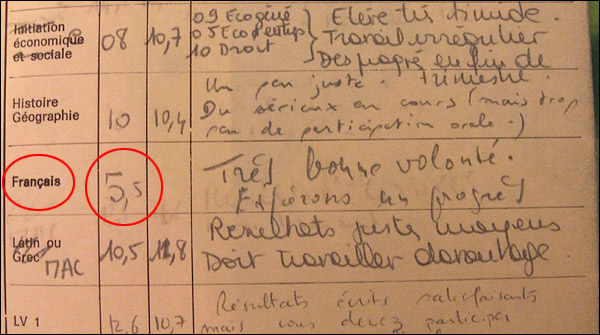 Initiation économique et sociale
08 10,7
09 Ecogéné
05 Eco d'entrep
10 Droit
Elève très timide.
Travail irrégulier
Des progrès en fin de
trimestre.
Histoire Géographie
10 10,4
Un peu juste.
Du sérieux en cours (mais trop
peu de participation orale.)
Français
5,5
Très bonne volonté.
Espérons un progrès
Latin ou Grec
MAC
10,5 11,8
Résultats justes moyens
Doit travailler davantage
LV 1
12,6 10,7
Résultats écrits satisfaisants
mais vous devez participer